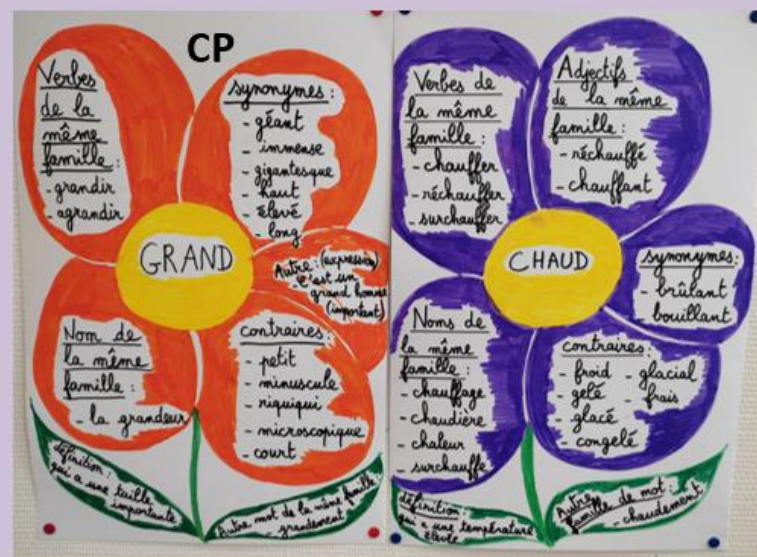 CP
Verbes
de la
même
famille :
- grandir
- agrandir
synonymes :
- géant
- immense
- gigantesque
- haut
- élevé
- long
GRAND
Autre : (expression)
- C'est un
grand homme
(important)
Nom de
la même
famille :
- la grandeur
contraires :
- petit
- minuscule
- riquiqui
- microscopique
- court
définition :
qui a une taille
importante
Autre mot de la même famille
- grandement
Verbes de
la même
famille :
- chauffer
- réchauffer
- surchauffer
Adjectifs
de la même
famille :
- réchauffé
- chauffant
CHAUD
synonymes :
- brûlant
- bouillant
Noms de
la même
famille :
- chauffage
- chaudière
- chaleur
- surchauffe
contraires :
- froid - glacial
- gelé - frais
- glacé
- congelé
définition :
qui a une température
élevée
Autre
famille de mot :
- chaudement